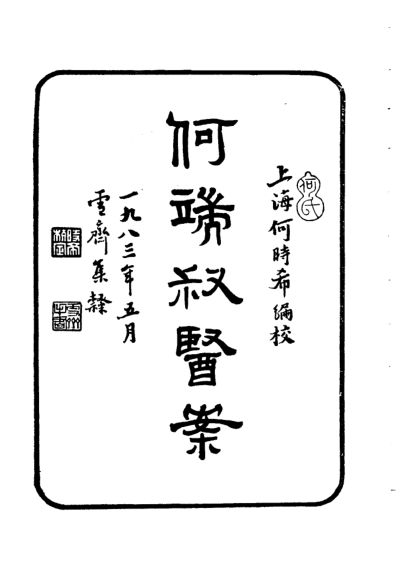 何氏
上海何時希編校
何端叔醫案
一九八三年五月
雲齋集隸